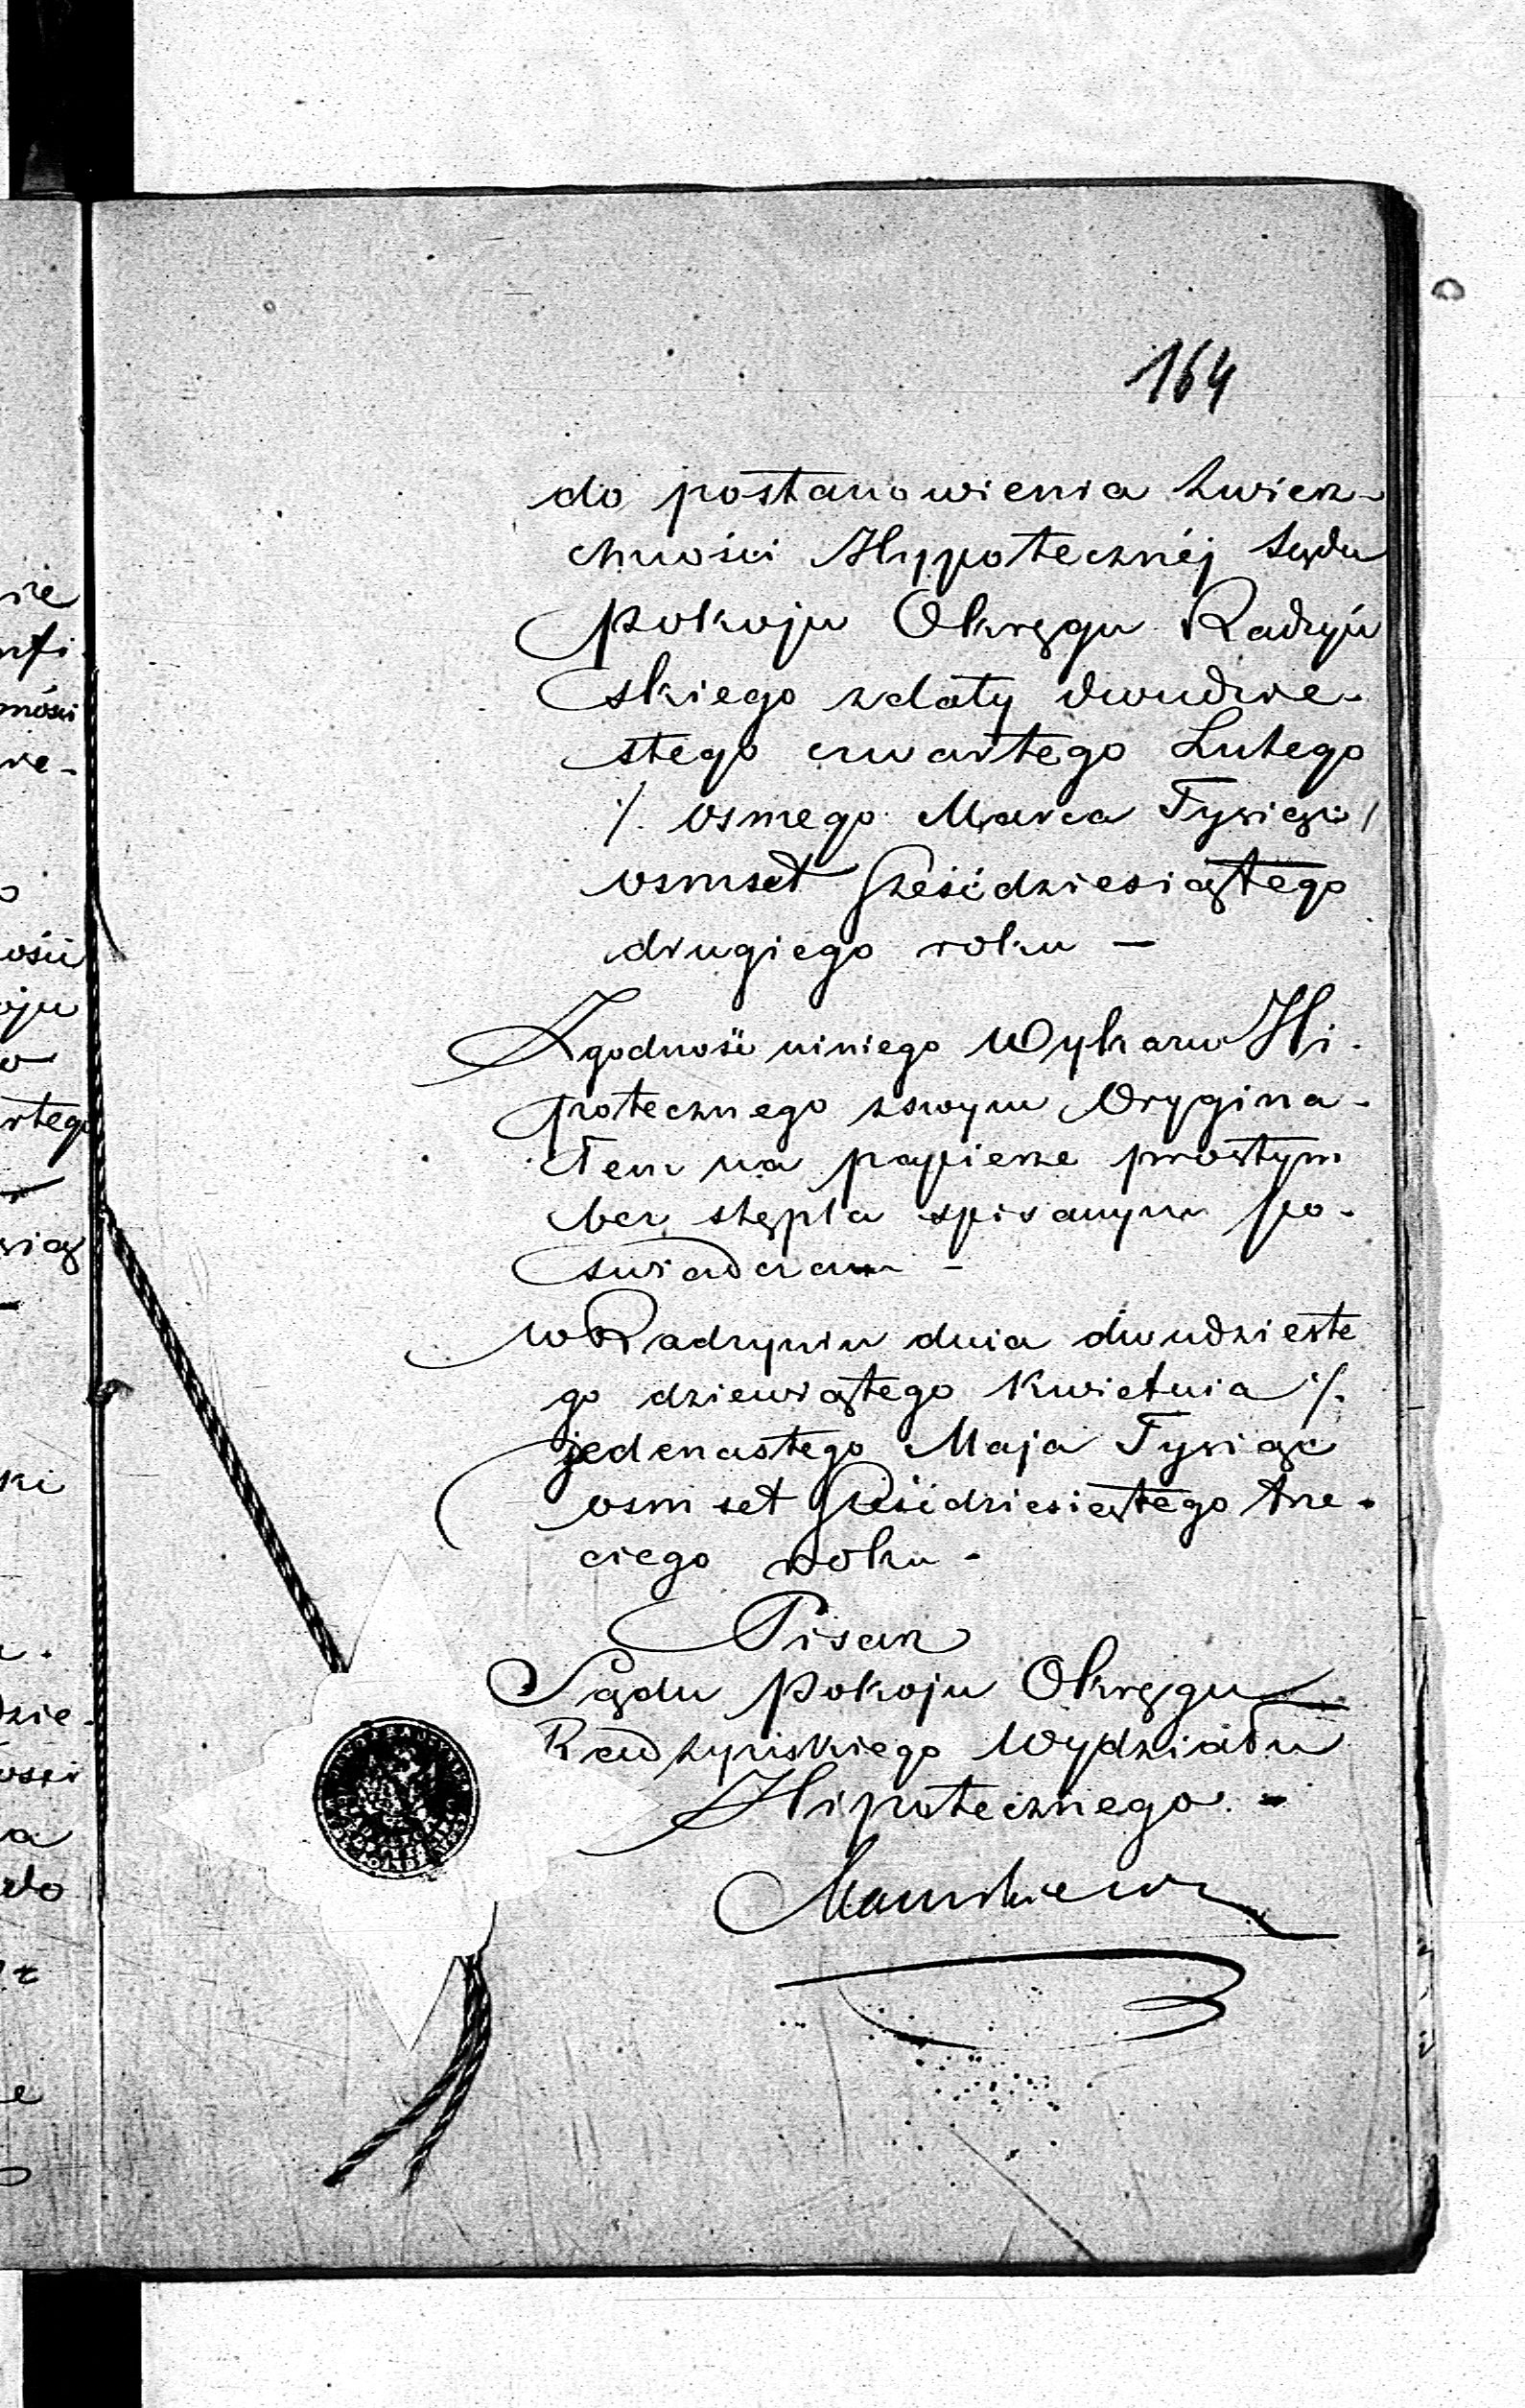 164
do postanowienia Zwierz-
chności Hyppotecznéj Sądu
Pokoju Okręgu Radzyń
skiego z daty dwudzie-
stego czwartego Lutego
/. osmego Marca Tysiąc
osmset sześćdziesiątego
drugiego roku —
Zgodność niniego Wykazu Hi-
potecznego z swym Orygina-
łem na papierze prostym
bez stępla spisanym po-
swiadczam —
w Radzyniu dnia dwudzieste
go dziewiątego Kwietnia /.
jedenastego Maja Tysiąc
osmset sześćdziesiątego trze-
ciego roku -
Pisarz
Sądu Pokoju Okręgu
Radzyńskiego Wydziału
Hipotecznego. -